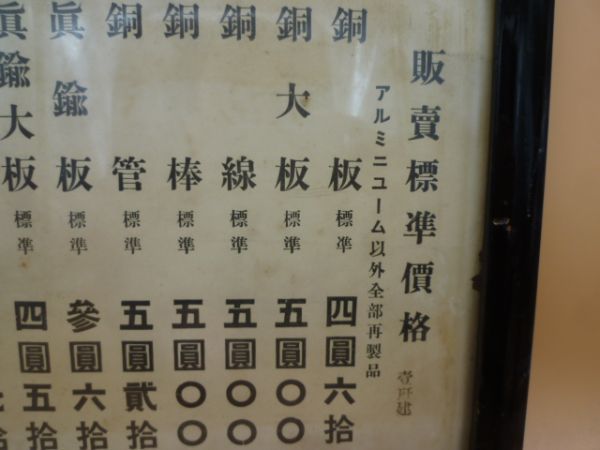 販賣標準價格
アルミニューム以外全部再製品
銅板 標準 四圓六拾
銅大板 標準 五圓〇〇
銅線 標準 五圓〇〇
銅棒 標準 五圓〇〇
銅管 標準 五圓貳拾
眞鍮板 標準 參圓六拾
眞鍮大板 標準 四圓五拾